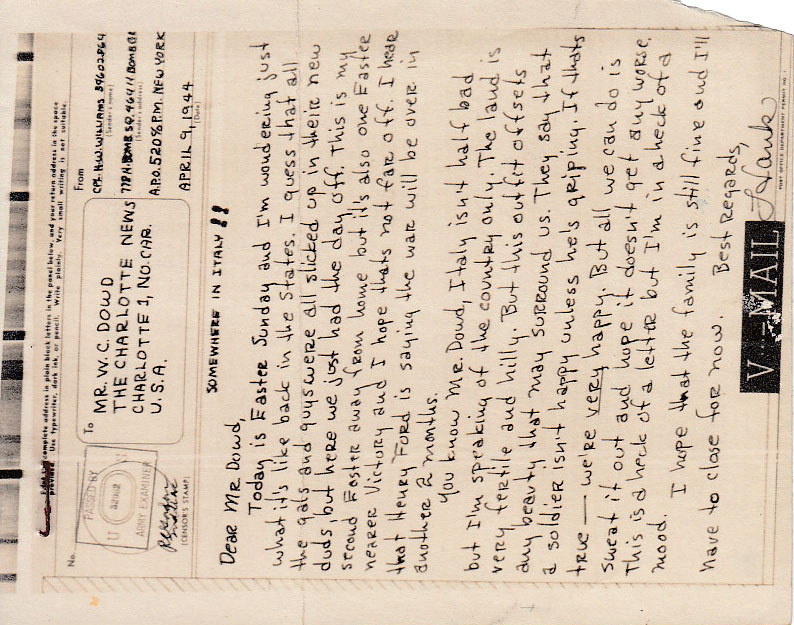 complete address in plain block letters in the panel below, and your return address in the space
provided. Use typewriter, dark ink, or pencil. Write plainly. Very small
writing is not suitable.
No.
PASSED BY
U
ARMY EXAMINER
(CENSOR'S STAMP)
To
MR. W. C. DOWD
THE CHARLOTTE NEWS
CHARLOTTE 1, NO. CAR.
U.S.A.
From
H.W. WILLIAMS
(Sender's name)
(Sender's address)
A.P.O. 520 % P.M. NEW YORK
APRIL 9, 1944
(Date)
SOMEWHERE IN ITALY!!
Dear Mr. Dowd,
Today is Easter Sunday and I'm wondering just
what it's like back in the States. I guess that all
the gals and guys were all slicked up in their new
duds, but here we just had the day off. This is my
second Easter away from home but it's also one Easter
nearer Victory and I hope thats not far off. I hear
that Henry Ford is saying the war will be over in
another 2 months.
You know Mr. Dowd, Italy isn't half bad
but I'm speaking of the country only. The land is
very fertile and hilly. But this outfit offsets
any beauty that may surround us. They say that
a soldier isn't happy unless he's griping. If thats
true — we're very happy. But all we can do is
sweat it out and hope it doesn't get any worse.
This is a heck of a letter but I'm in a heck of a
mood.
I hope that the family is still fine and I'll
have to close for now.
Best Regards,
Hank
V···—MAIL
POST OFFICE DEPARTMENT PERMIT NO.